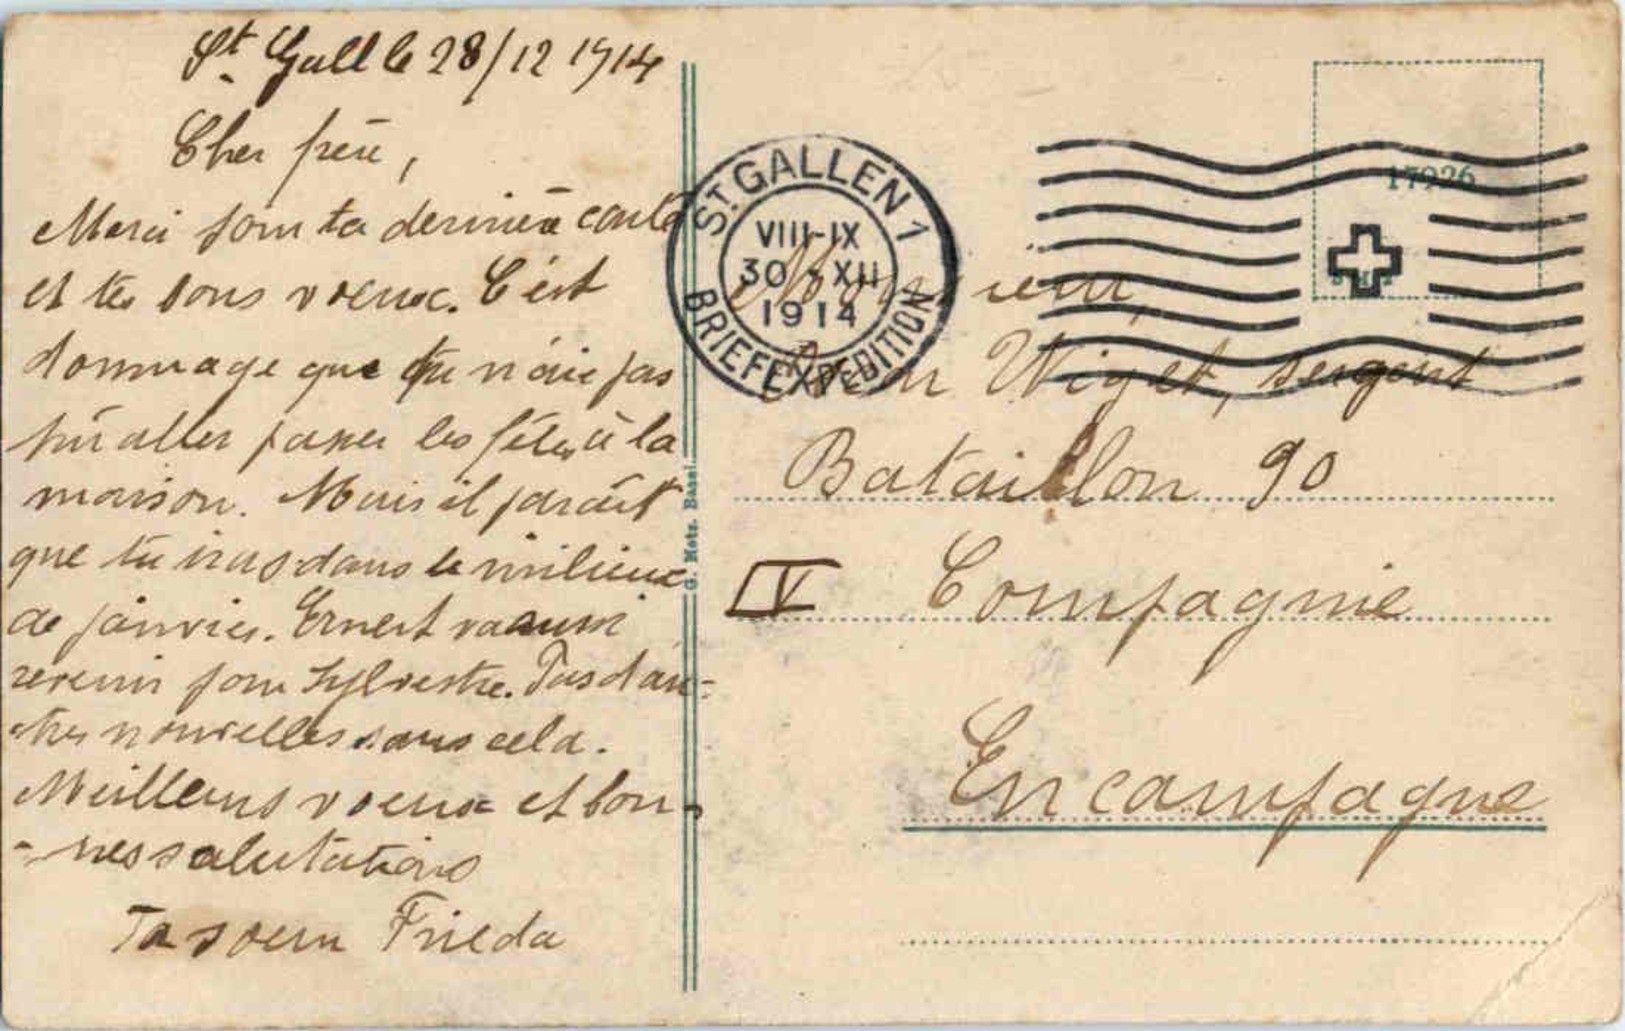 St. Gall le 28/12 1914
Cher frère,
Merci pour ta dernière carte
et tes bons voeux. C'est
dommage que tu n'aie pas
pu aller passer les fêtes à la
maison. Mais il parait
que tu iras dans le milieux
de janvier. Ernest va aussi
revenir pour Sylvestre. Pas d'au-
tres nouvelles sans cela.
Meilleurs voeux et bon-
-nes salutations
Ta soeur Frieda
G. Metz, Basel
ST. GALLEN 1
VIII-IX
30 XII
1914
BRIEFEXPEDITION
17926
Monsieur,
Wiget, sergent
Bataillon 90
IV Compagnie
En campagne